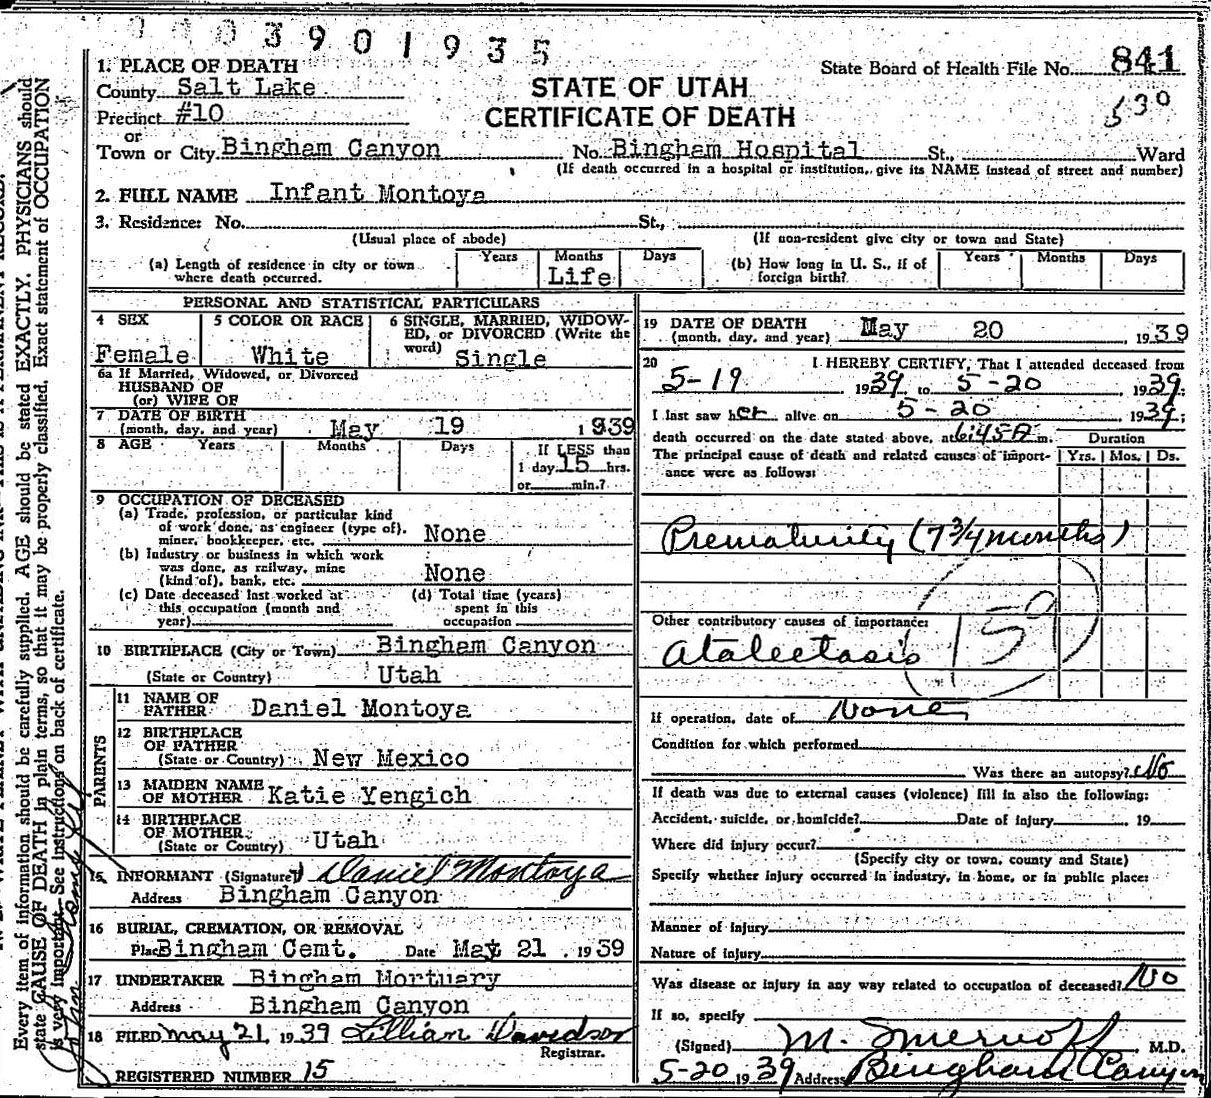 0003901935
State Board of Health File No. 841
530
STATE OF UTAH
CERTIFICATE OF DEATH
1. PLACE OF DEATH
County Salt Lake
Precinct #10
or
Town or City Bingham Canyon No. Bingham Hospital St., Ward
(If death occurred in a hospital or institution, give its NAME instead of street and number)
2. FULL NAME Infant Montoya
3. Residence: No. St.,
(Usual place of abode) (If non-resident give city or town and State)
(a) Length of residence in city or town where death occurred. Years Months Life Days
(b) How long in U. S., if of foreign birth? Years Months Days
PERSONAL AND STATISTICAL PARTICULARS
4 SEX Female
5 COLOR OR RACE White
6 SINGLE, MARRIED, WIDOWED, or DIVORCED (Write the word) Single
6a If Married, Widowed, or Divorced
HUSBAND OF
(or) WIFE OF
7 DATE OF BIRTH
(month, day, and year) May 19 1939
8 AGE Years Months Days If LESS than
1 day 15 hrs.
or min.?
9 OCCUPATION OF DECEASED
(a) Trade, profession, or particular kind
of work done, as engineer (type of),
miner, bookkeeper, etc. None
(b) Industry or business in which work
was done, as railway, mine
(kind of), bank, etc. None
(c) Date deceased last worked at
this occupation (month and
year)
(d) Total time (years)
spent in this
occupation
10 BIRTHPLACE (City or Town) Bingham Canyon
(State or Country) Utah
PARENTS
11 NAME OF
FATHER Daniel Montoya
12 BIRTHPLACE
OF FATHER
(State or Country) New Mexico
13 MAIDEN NAME
OF MOTHER Katie Yengich
14 BIRTHPLACE
OF MOTHER
(State or Country) Utah
15 INFORMANT (Signature) Daniel Montoya
Address Bingham Canyon
16 BURIAL, CREMATION, OR REMOVAL
Place Bingham Cemt. Date May 21, 1939
17 UNDERTAKER Bingham Mortuary
Address Bingham Canyon
18 FILED May 21, 1939 Lillian Davidson
Registrar.
REGISTERED NUMBER 15
19 DATE OF DEATH
(month, day, and year) May 20 , 1939
20 I HEREBY CERTIFY, That I attended deceased from
5-19 1939, to 5-20 1939;
I last saw her alive on 5-20 1939;
death occurred on the date stated above, at 6:45A m.
The principal cause of death and related causes of importance were as follows:
Duration
Yrs. Mos. Ds.
Prematurity (7 3/4 months)
159
Other contributory causes of importance:
Atalectasis
If operation, date of None
Condition for which performed
Was there an autopsy? No
If death was due to external causes (violence) fill in also the following:
Accident, suicide, or homicide? Date of injury 19
Where did injury occur?
(Specify city or town, county and State)
Specify whether injury occurred in industry, in home, or in public place:
Manner of injury
Nature of injury
Was disease or injury in any way related to occupation of deceased? No
If so, specify
(Signed) M. Smernoff M.D.
5-20 1939 Address Bingham Canyon
Every item of information should be carefully supplied. AGE should be stated EXACTLY. PHYSICIANS should
state CAUSE OF DEATH in plain terms, so that it may be properly classified. Exact statement of OCCUPATION
is very important. See instructions on back of certificate.